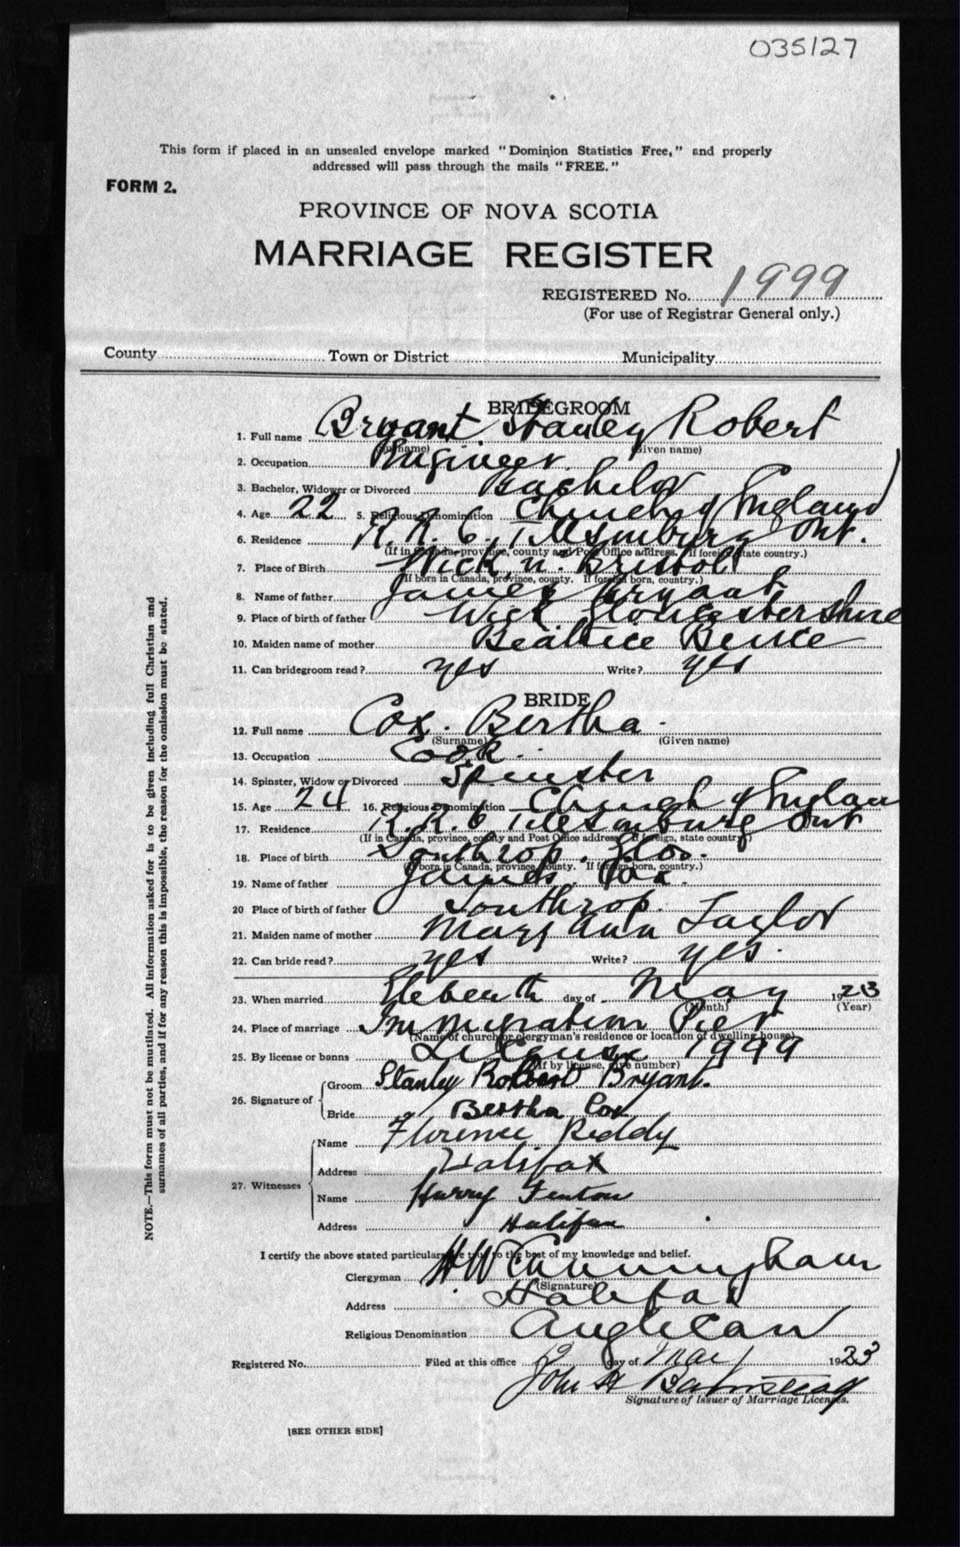 035127
This form if placed in an unsealed envelope marked "Dominion Statistics Free," and properly
addressed will pass through the mails "FREE."
FORM 2.
PROVINCE OF NOVA SCOTIA
MARRIAGE REGISTER
REGISTERED No. 1999
(For use of Registrar General only.)
County Town or District Municipality
BRIDEGROOM
1. Full name Bryant Stanley Robert
(Surname) (Given name)
2. Occupation Engineer
3. Bachelor, Widower or Divorced Bachelor
4. Age 22 5. Religious Denomination Church of England
6. Residence R.R. 6. Tillsonburg Ont.
(If in Canada, province, county and Post Office address. If foreign, state country.)
7. Place of Birth Wick n. Bristol
(If born in Canada, province, county. If foreign born, country.)
8. Name of father James Bryant
9. Place of birth of father Wick Gloucestershire
10. Maiden name of mother Beatrice
11. Can bridegroom read? yes Write? yes
BRIDE
12. Full name Cox. Bertha.
(Surname) (Given name)
13. Occupation Cook.
14. Spinster, Widow or Divorced Spinster
15. Age 24 16. Religious Denomination Church of England
17. Residence R.R. 6 Tillsonburg Ont
(If in Canada, province, county and Post Office address. If foreign, state country)
18. Place of birth Southrop. Glos.
(If born in Canada, province, county. If foreign born, country.)
19. Name of father James. Cox.
20 Place of birth of father Southrop.
21. Maiden name of mother Mary Ann Taylor
22. Can bride read? yes Write? yes.
23. When married Eleventh day of May 1923
(Month) (Year)
24. Place of marriage Immigration Pier
(Name of church or clergyman's residence or location of dwelling house)
25. By license or banns License 1999
(If by license, give number)
26. Signature of Groom Stanley Robert Bryant.
Bride Bertha Cox
27. Witnesses Name Florence Reddy
Address Halifax
Name Harry Fenton
Address Halifax
I certify the above stated particulars are true to the best of my knowledge and belief.
Clergyman H W Cunningham
(Signature)
Address Halifax
Religious Denomination Anglican
Registered No. Filed at this office day of May 1923
John H Barnstead
Signature of Issuer of Marriage Licenses.
[SEE OTHER SIDE]
NOTE.—This form must not be mutilated. All information asked for is to be given including full Christian and
surnames of all parties, and if for any reason this is impossible, the reason for the omission must be stated.